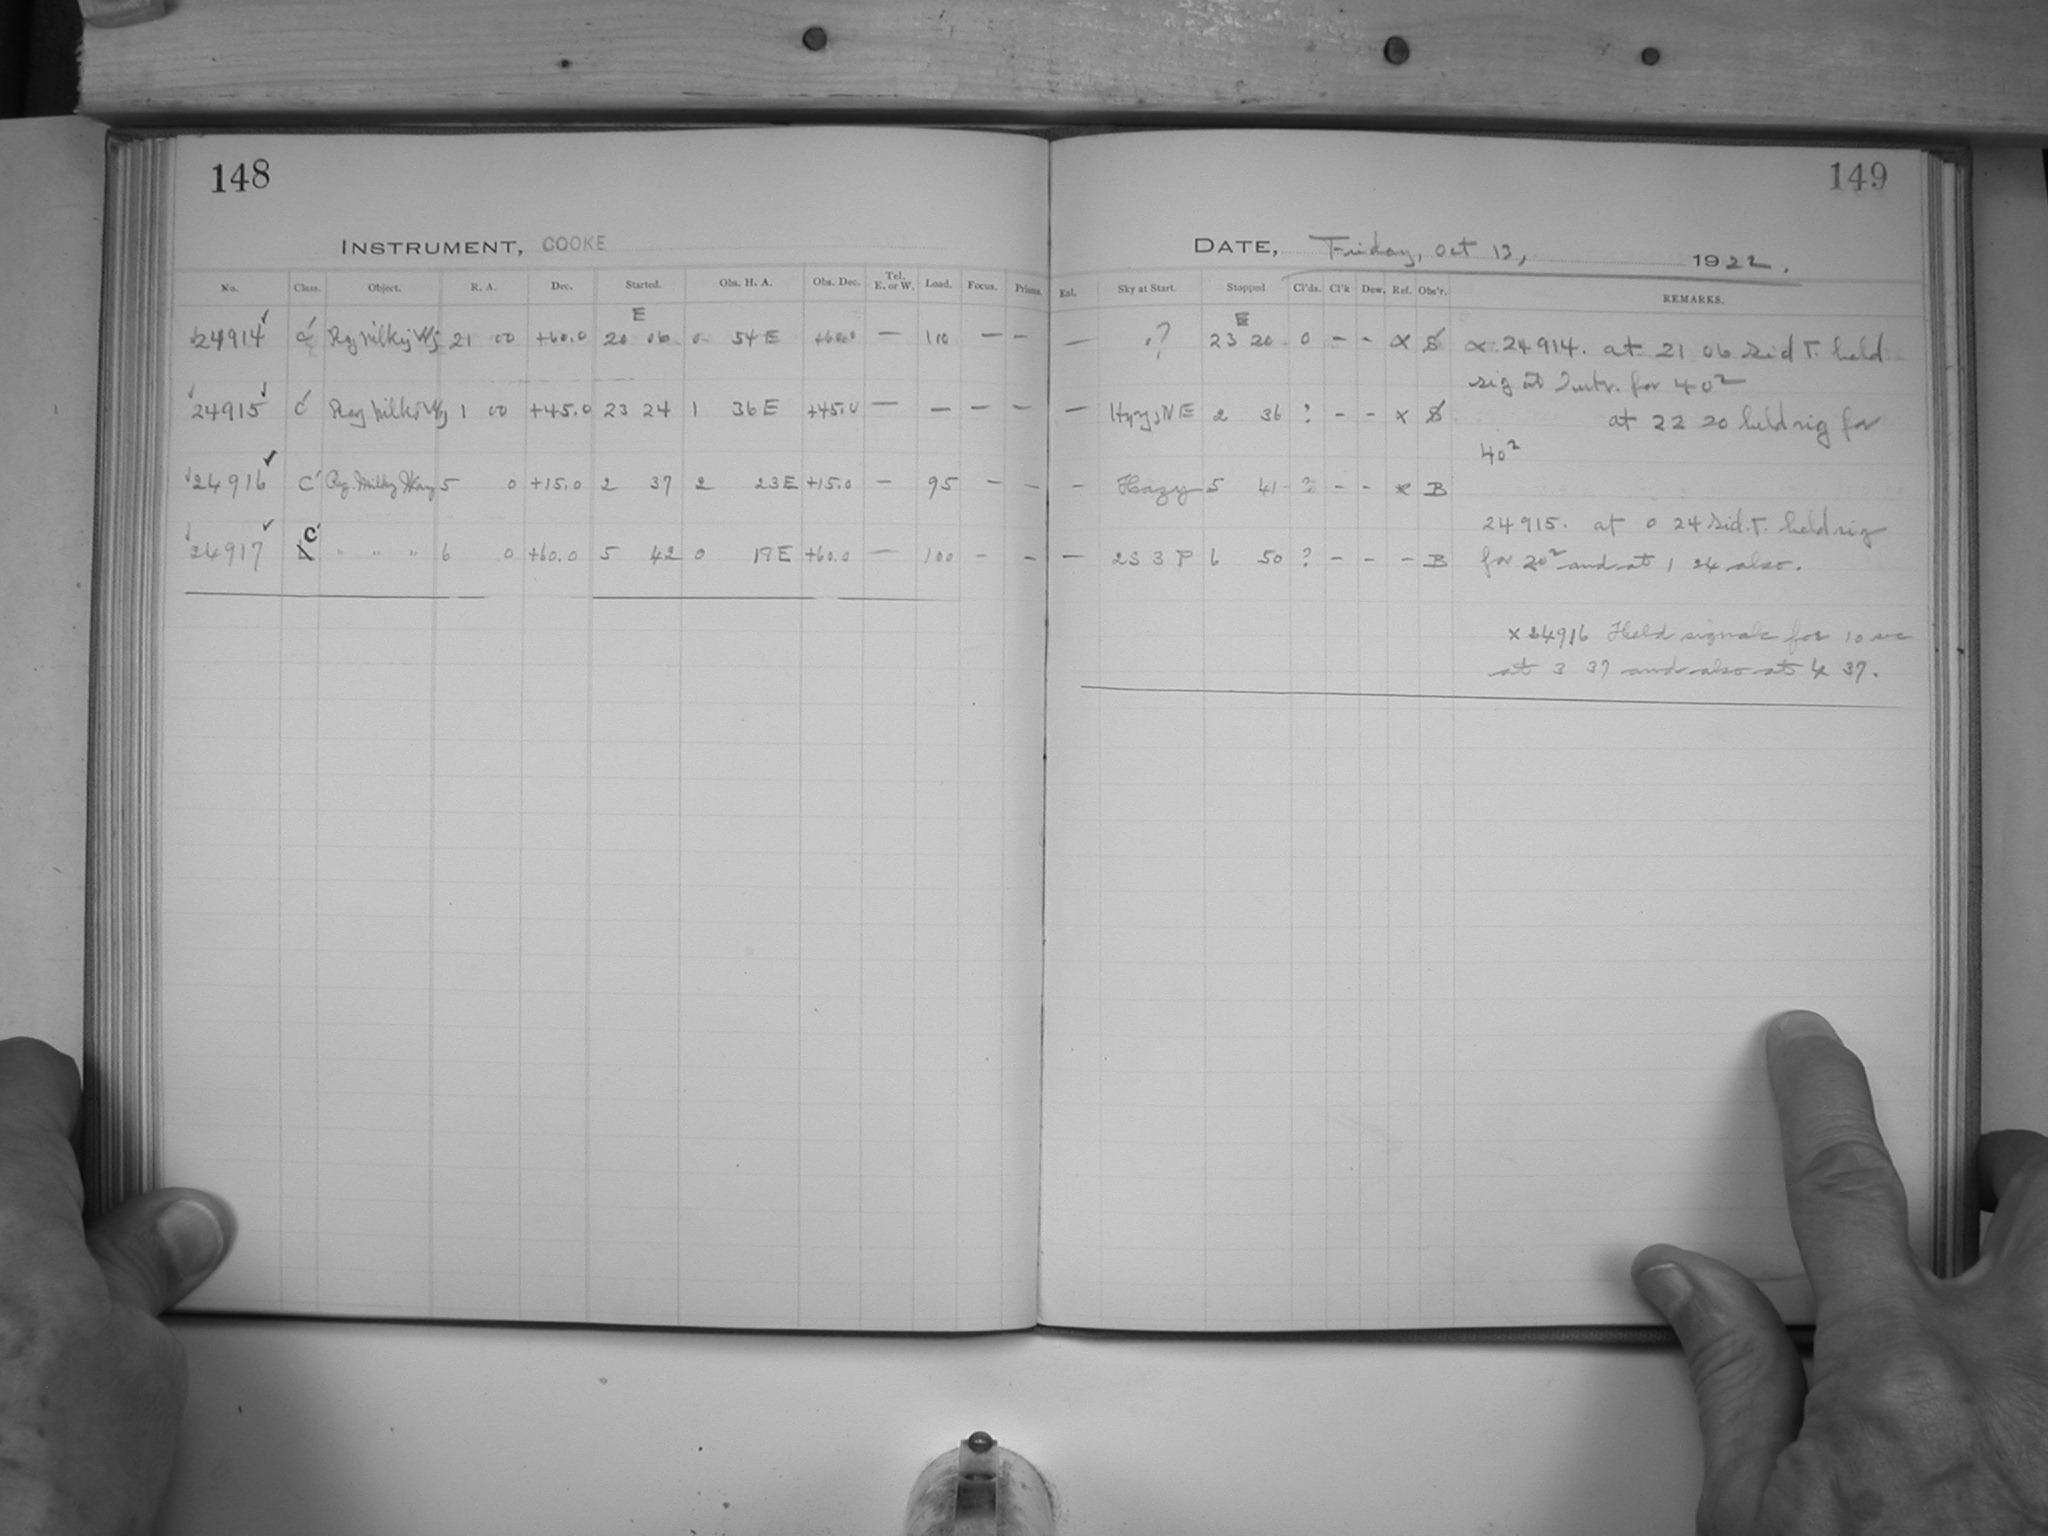 148
INSTRUMENT, COOKE
No. Class. Object. R. A. Dec. Started. Obs. H. A. Obs. Dec. Tel. E. or W. Load. Focus. Prisms.
E
24914 C Reg Milky Wy 21 00 +60.0 20 06 0 54 E +60.0 — 110 — —
24915 C Reg Milky Wy 1 00 +45.0 23 24 1 36 E +45.0 — — — —
24916 C Reg. Milky Way 5 0 +15.0 2 37 2 23 E +15.0 — 95 - -
C
24917 " " " 6 0 +60.0 5 42 0 18 E +60.0 — 100 - -
149
DATE, Friday, Oct 13, 1922.
Enl. Sky at Start. Stopped Cl'ds. Cl'k Dew. Ref. Obs'r. REMARKS.
E
— ? 23 20 0 - - x S x 24914. at 21 06 Sid T. held
sig at Instr. for 40²
— NE 2 36 ? - - x S at 22 20 held sig for
40²
- Hazy 5 41 ? - - x B
24915. at 0 24 Sid. T. held sig
— 2S 3 P 6 50 ? - - - B for 20² and at 1 24 also.
x 24916 Held signals for 10 sec
at 3 37 and also at 4 37.